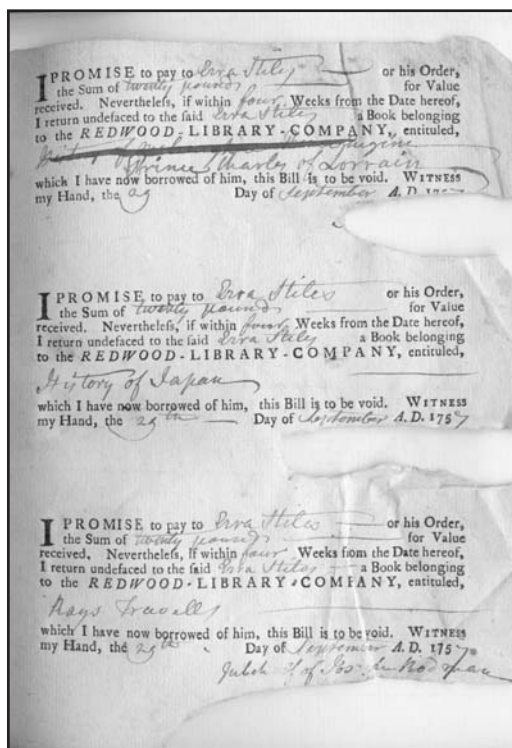 I PROMISE to pay to Ezra Stiles or his Order,
the Sum of twenty pounds for Value
received. Nevertheleſs, if within four Weeks from the Date hereof,
I return undefaced to the ſaid Ezra Stiles a Book belonging
to the REDWOOD-LIBRARY-COMPANY, entituled,
History of
Prince Charles of Lorrain
which I have now borrowed of him, this Bill is to be void. WITNESS
my Hand, the 29 Day of September A. D. 1757
I PROMISE to pay to Ezra Stiles or his Order,
the Sum of twenty pounds for Value
received. Nevertheleſs, if within four Weeks from the Date hereof,
I return undefaced to the ſaid Ezra Stiles a Book belonging
to the REDWOOD-LIBRARY-COMPANY, entituled,
History of Japan
which I have now borrowed of him, this Bill is to be void. WITNESS
my Hand, the 29th Day of September A. D. 1757
I PROMISE to pay to Ezra Stiles or his Order,
the Sum of twenty pounds for Value
received. Nevertheleſs, if within four Weeks from the Date hereof,
I return undefaced to the ſaid Ezra Stiles a Book belonging
to the REDWOOD-LIBRARY-COMPANY, entituled,
Rays Travells
which I have now borrowed of him, this Bill is to be void. WITNESS
my Hand, the 29th Day of September A. D. 1757
of Joseph Rodman